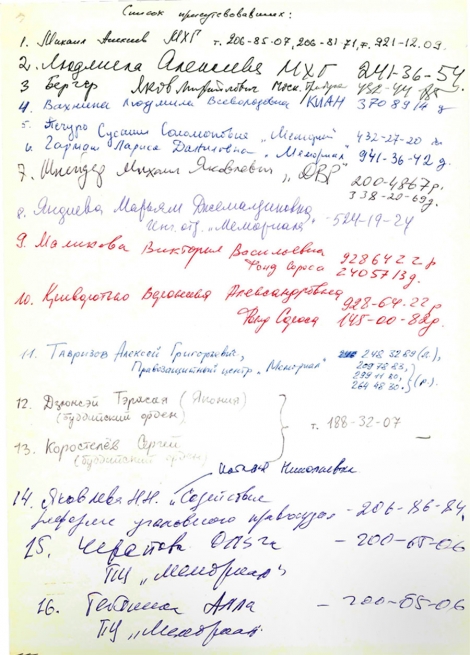 Список присутствовавших:
1. Михаил Алексеев МХГ т. 206-85-07, 206-81 71, г. 921-12.09.
2. Людмила Алексеева МХГ 241-36-54.
3 Бергер Яков Моск. 432-44
4. Вахнина Людмила Всеволодовна КИАН 370 89 14 д
5. Печуро Сусанна Соломоновна "Мемориал" 432-27-20 д.
6. Лариса Даниловна "Мемориал" 941-36-42 д.
7. Шнейдер Михаил Яковлевич, "ДВР"
200-4867 р.
338-20-69 д.
8. Яндиева Марьям Джемалдиновна,
отд. "Мемориала" - 524-19-24
9. Маликова Виктория Васильевна 928 64 22 р
Фонд Сороса 240 57 13 д.
10. Александровна 928-64-22 р
Фонд Сороса 145-00-82 д.
11. Тавризов Алексей Григорьевич, 248 32 69 (д.),
Правозащитный центр "Мемориал" 209 78 83,
264 48 30. (р.)
12. Дзюнсэй Тэрасава (Япония)
(буддийский орден)
т. 188-32-07
13. Коростелёв Сергей
(буддийский орден)
Николаевна
14. Яковлева Н.Н. "Содействие
реформе уголовного правосудия - 206-86-84,
15. Черепова Ольга - 200-65-06
ПЦ "Мемориал"
16. Алла - 200-65-06
ПЦ "Мемориал